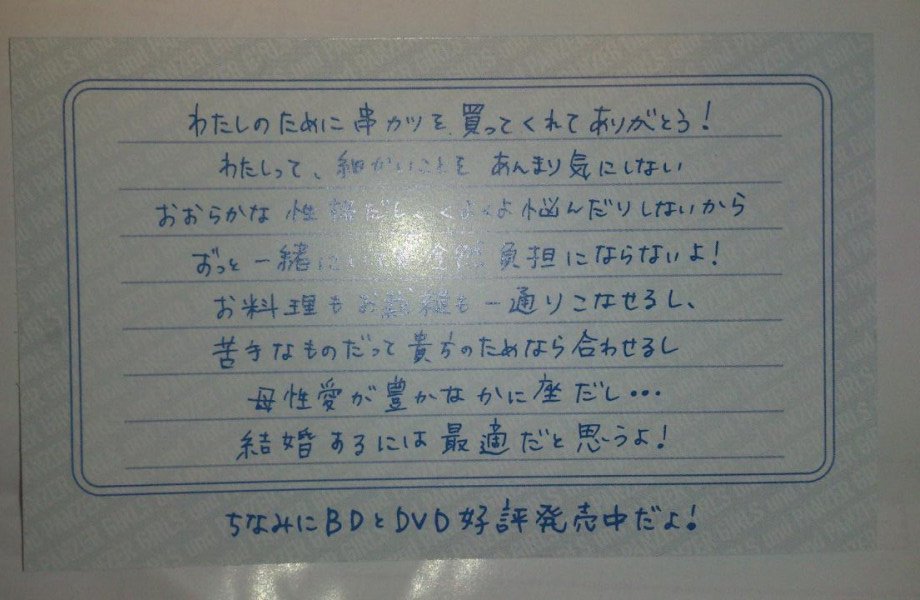 わたしのために串カツを買ってくれてありがとう！
わたしって、細かいことをあんまり気にしない
おおらかな性格だしくよくよ悩んだりしないから
ずっと一緒に 負担にならないよ！
お料理もお も一通りこなせるし、
苦手なものだって貴方のためなら合わせるし
母性愛が豊かなかに座だし…
結婚するには最適だと思うよ！
ちなみにBDとDVD好評発売中だよ！
GIRLS und PANZER